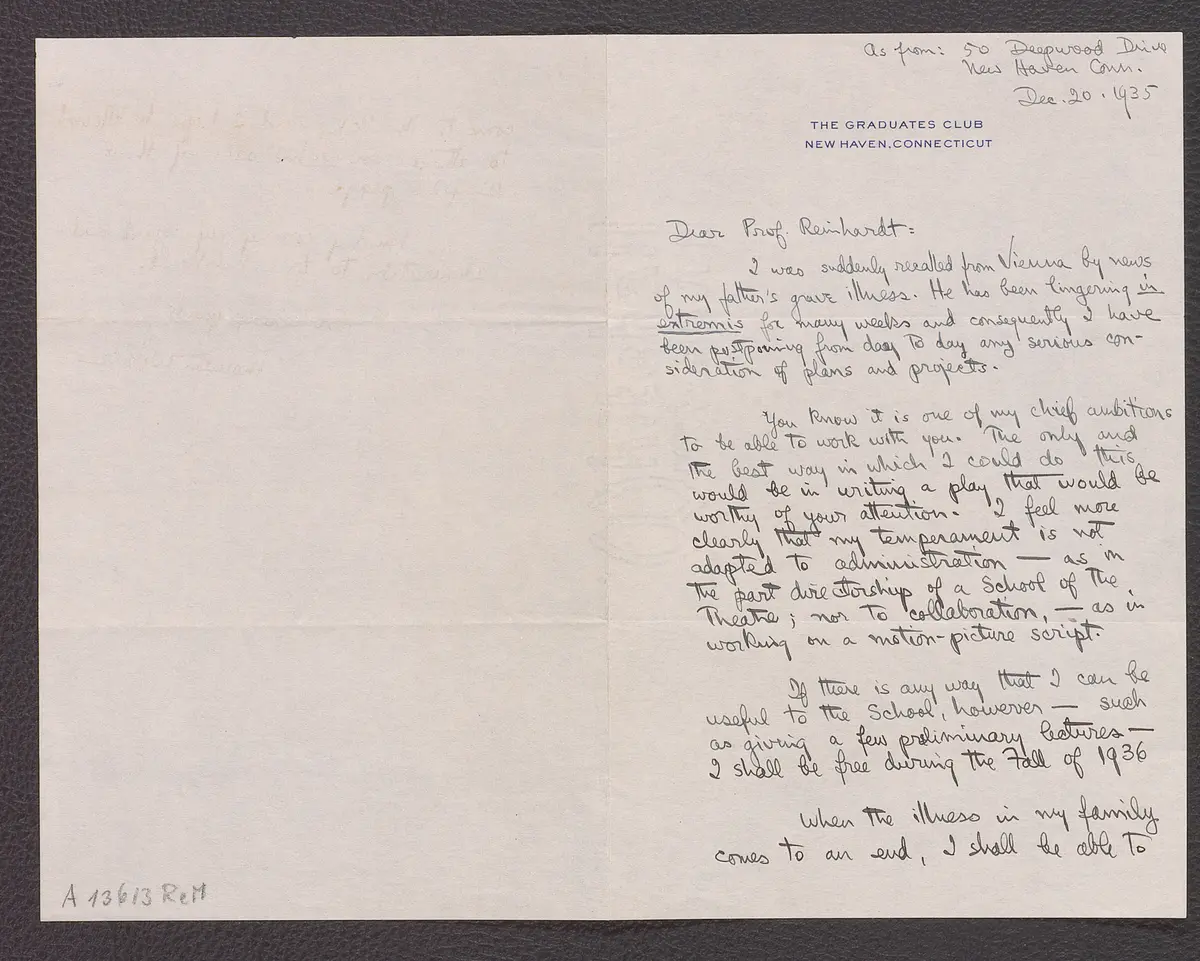 As from: 50 Deepwood Drive
New Haven Conn.
Dec. 20. 1935
THE GRADUATES CLUB
NEW HAVEN, CONNECTICUT
Dear Prof. Reinhardt:
I was suddenly recalled from Vienna by news
of my father's grave illness. He has been lingering in
extremis for many weeks and consequently I have
been postponing from day to day any serious con-
sideration of plans and projects.
You know it is one of my chief ambitions
to be able to work with you. The only and
the best way in which I could do this
would be in writing a play that would be
worthy of your attention. I feel more
clearly that my temperament is not
adapted to administration — as in
the part directorship of a School of the
Theatre; nor to collaboration, — as in
working on a motion-picture script.
If there is any way that I can be
useful to the School, however — such
as giving a few preliminary lectures —
I shall be free during the Fall of 1936
When the illness in my family
comes to an end, I shall be able to
A 13613 ReM